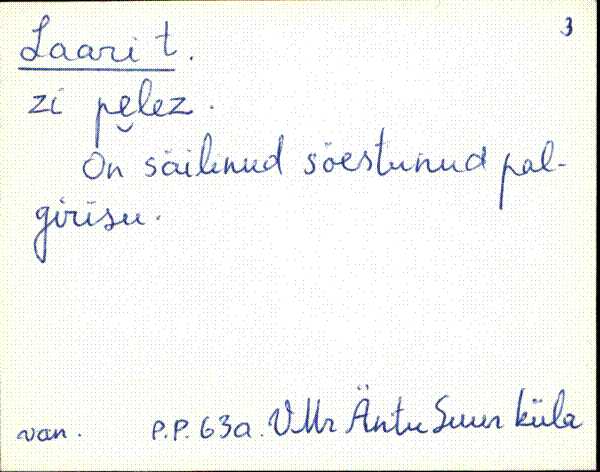 3
Laari t.
zi pe̮lez.
On säilinud söestunud pal-
girisu.
van. P.P. 63a. VMr Äntu Suur küla